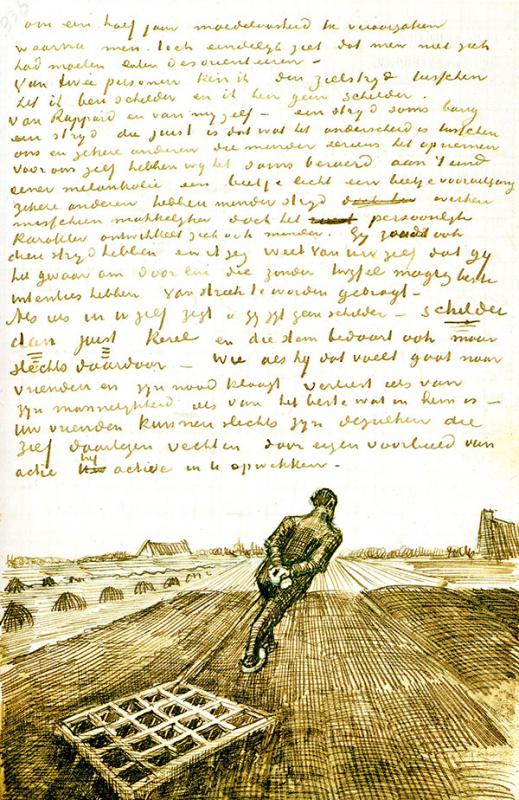 om een half jaar moedeloosheid te veroorzaken
waarna men toch eindelijk ziet dat men niet zich
had moeten laten desorienteeren –
Van twee personen ken ik den zielstryd tusschen
het ik ben schilder en ik ben geen schilder.
Van Rappard en van my zelf – een stryd soms bang
een stryd die juist is dat wat het onderscheid is tusschen
ons en zekere anderen die minder serieus het opnemen
voor ons zelf hebben wy het soms beroerd aan 't eind
eener melankolie een beetje licht een beetje vooruitgang
zekere anderen hebben minder stryd werken
misschien makkelyker doch het persoonlyk
karakter ontwikkelt zich ook minder. Gy zoudt ook
dien stryd hebben en ik zeg weet van uw zelf dat gy
het gevaar om door lui die zonder twyfel magnifieke
intenties hebben van streek te worden gebragt –
Als iets in U zelf zegt "gy zyt geen schilder – schilder
dan juist kerel en die stem bedaart ook maar
slechts daardoor – wie als hy dat voelt gaat naar
vrienden en zyn nood klaagt verliest iets van
zyn mannelykheid iets van het beste wat in hem is –
Uw vrienden kunnen slechts zyn dezulken die
zelf daartegen vechten door eigen voorbeeld van
actie de actieve in U opwekken –